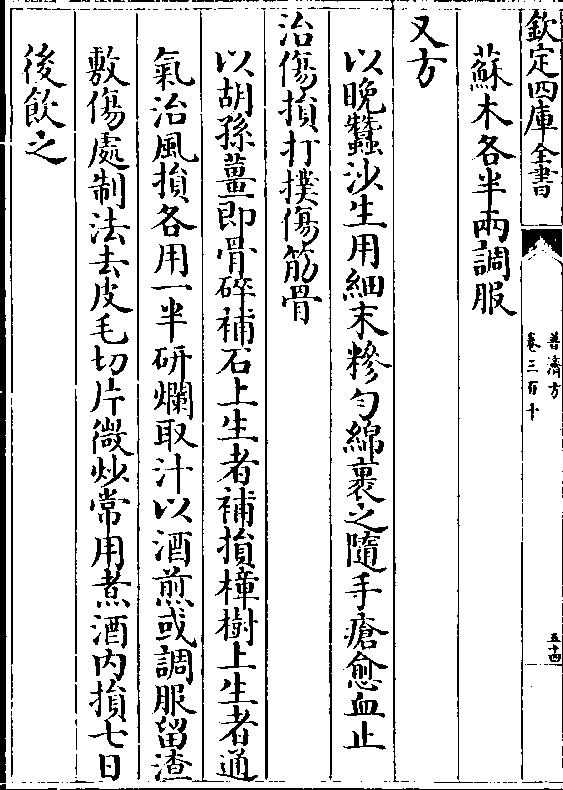 欽定四庫全書
普濟方
卷三百十
五十四
蘇木各半兩調服
又方
以晚蠶沙生用細末糝勻綿裹之隨手瘡愈血止
治傷損打撲傷筋骨
以胡孫薑即骨碎補石上生者補損樟樹上生者通
氣治風損各用一半研爛取汁以酒煎或調服留渣
敷傷處制法去皮毛切片微炒常用煮酒内損七日
後飲之